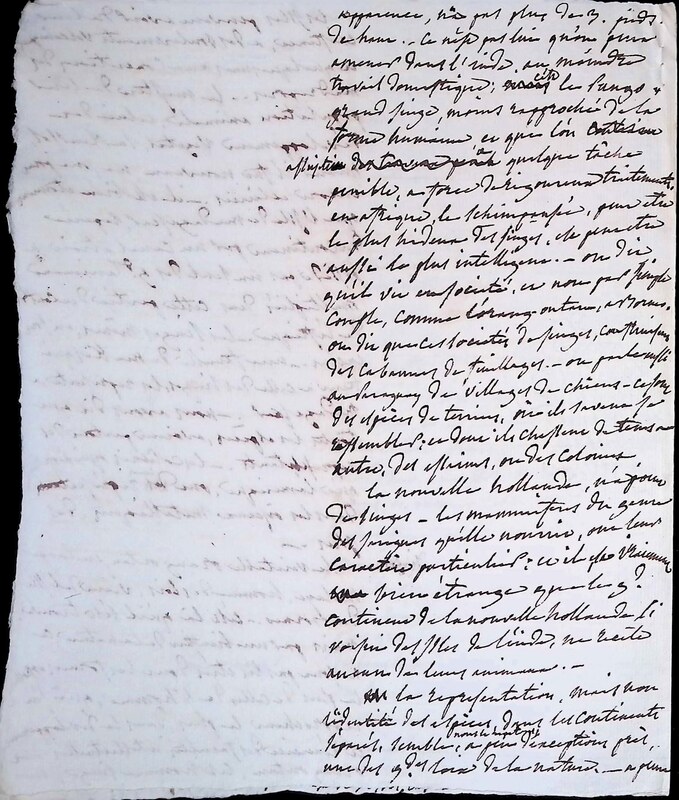 apparence, n'a pas plus de 3. pieds
de haut. - Ce n'est pas lui qu'on peut
amener dans l'inde, au moindre
travail domestique; c'est le Pongo
grand singe, moins rapproché de la
forme humaine et que l'on
assujettit quelque tâche
penible, a force de rigoureux traitements.
en afrique, le schimpansée, peut etre
le plus hideux des singes, est peut etre
aussi le plus intelligent. - on dit
qu'il vit en société, et non par simple
couple, comme l'orang-outan,
on dit que ces sociétés de singes, construisent
des cabannes de feuillages. - on parle aussi
au Paraguay de villages de chiens - ce sont
des espèces de terriers, où ils savent se
rassembler: et dont ils chassent de tems a
autre, des essaims, ou des colonies
la nouvelle hollande, n'a point
de singes - les mammifères du genre
des sarigues qu'elle nourrit, ont leur
caractère particulier: et il est vraiment
bien étrange que le gd.
continent de la nouvelle hollande si
voisin des isles de l'inde, ne recèle
aucun de leurs animaux. -
la représentation, mais non
l'identité des espèces, dans les continents
séparés, semble, a peu d'exceptions près,
une des gdes loix de la nature. - a peine